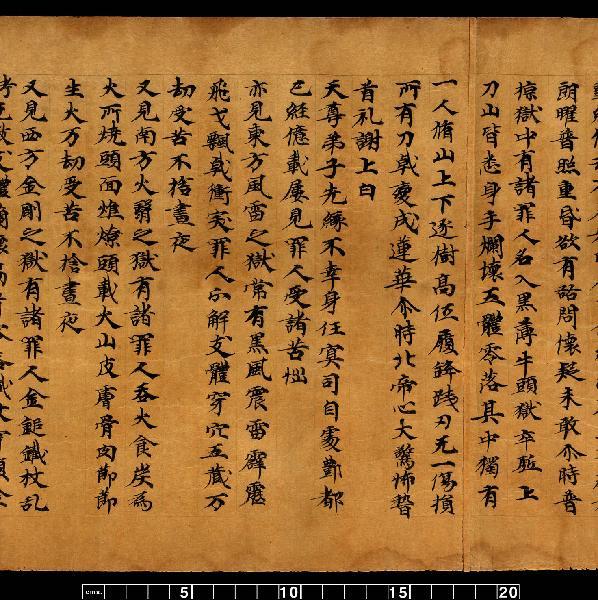 朗曜普照重昏欲有諮問懷疑未敢尒時普
掠獄中有諸罪人名入黑薄牛頭獄卒駈上
刀山皆悉身手爛壞五體零落其中獨有
一人循山上下逐樹高伍履鋒踐刃无一傷損
所有刀戟變成蓮華尒時北帝心大驚怖聱
首礼謝上白
天尊弟子先緣不幸身任冥司自處酆都
已經億載屢見罪人受諸苦惱
亦見東方風雷之獄常有黑風震雷霹靂
飛戈飄戟衝突罪人分解支體穿穴五藏万
劫受苦不捨晝夜
又見南方火翳之獄有諸罪人吞火食炭為
火所燒頭面燋燎頭載火山皮膚骨肉節節
生火万劫受苦不捨晝夜
又見西方金剛之獄有諸罪人金鎚鐵杖乱